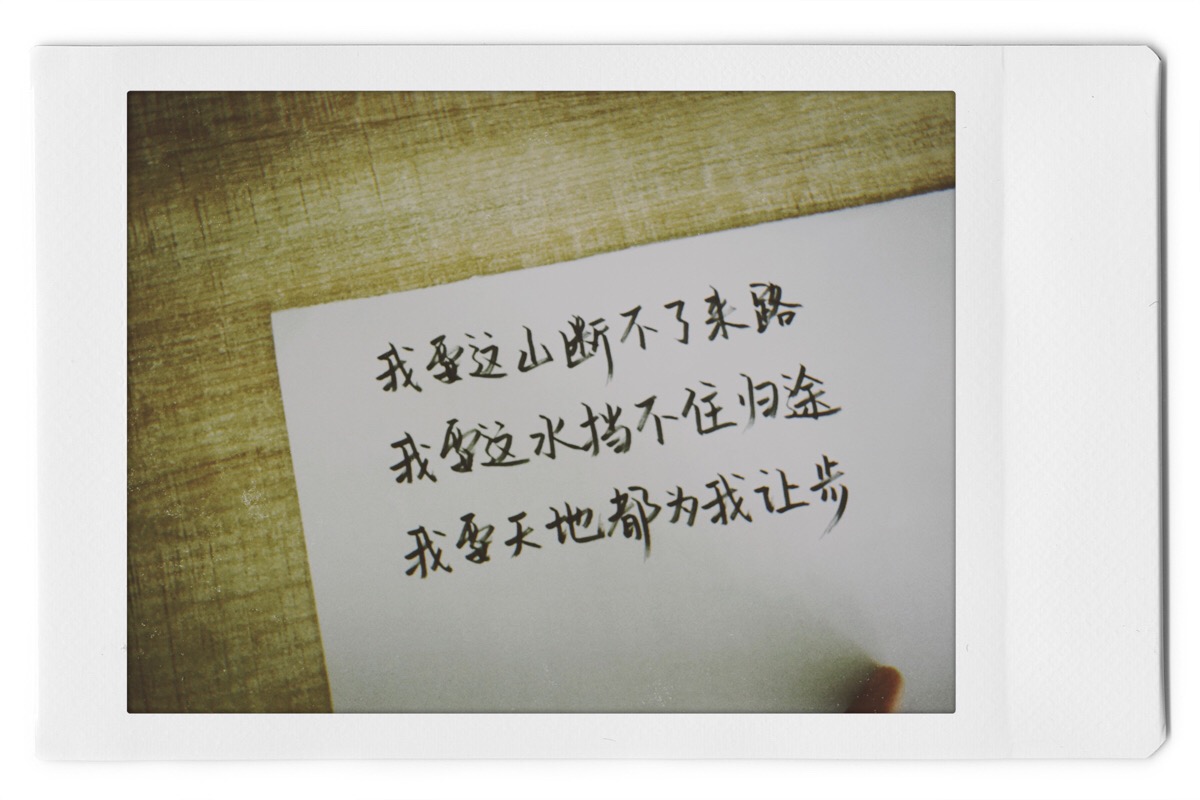 我要这山断不了来路
我要这水挡不住归途
我要天地都为我让步